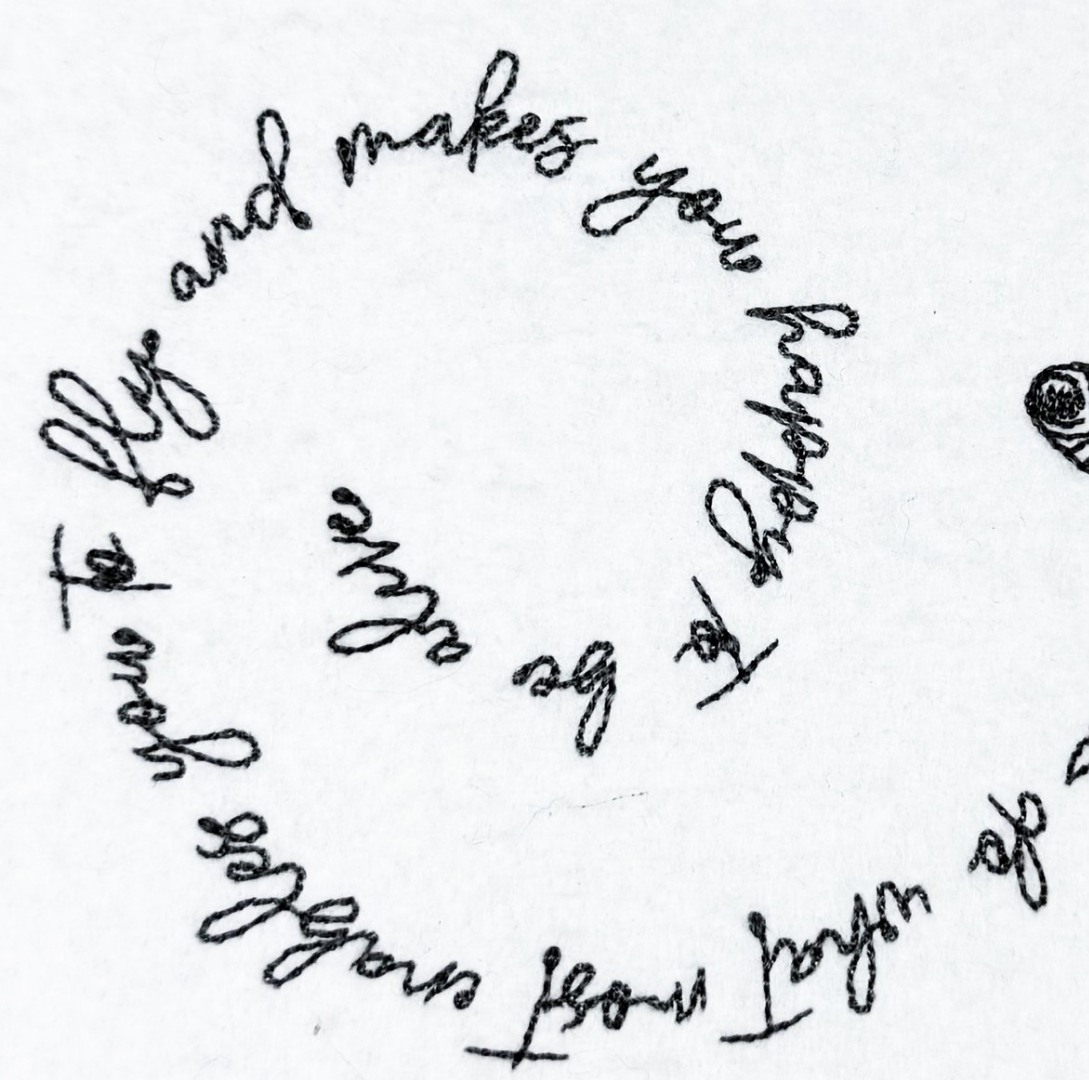 do what most enables you to fly and makes you happy to be alive